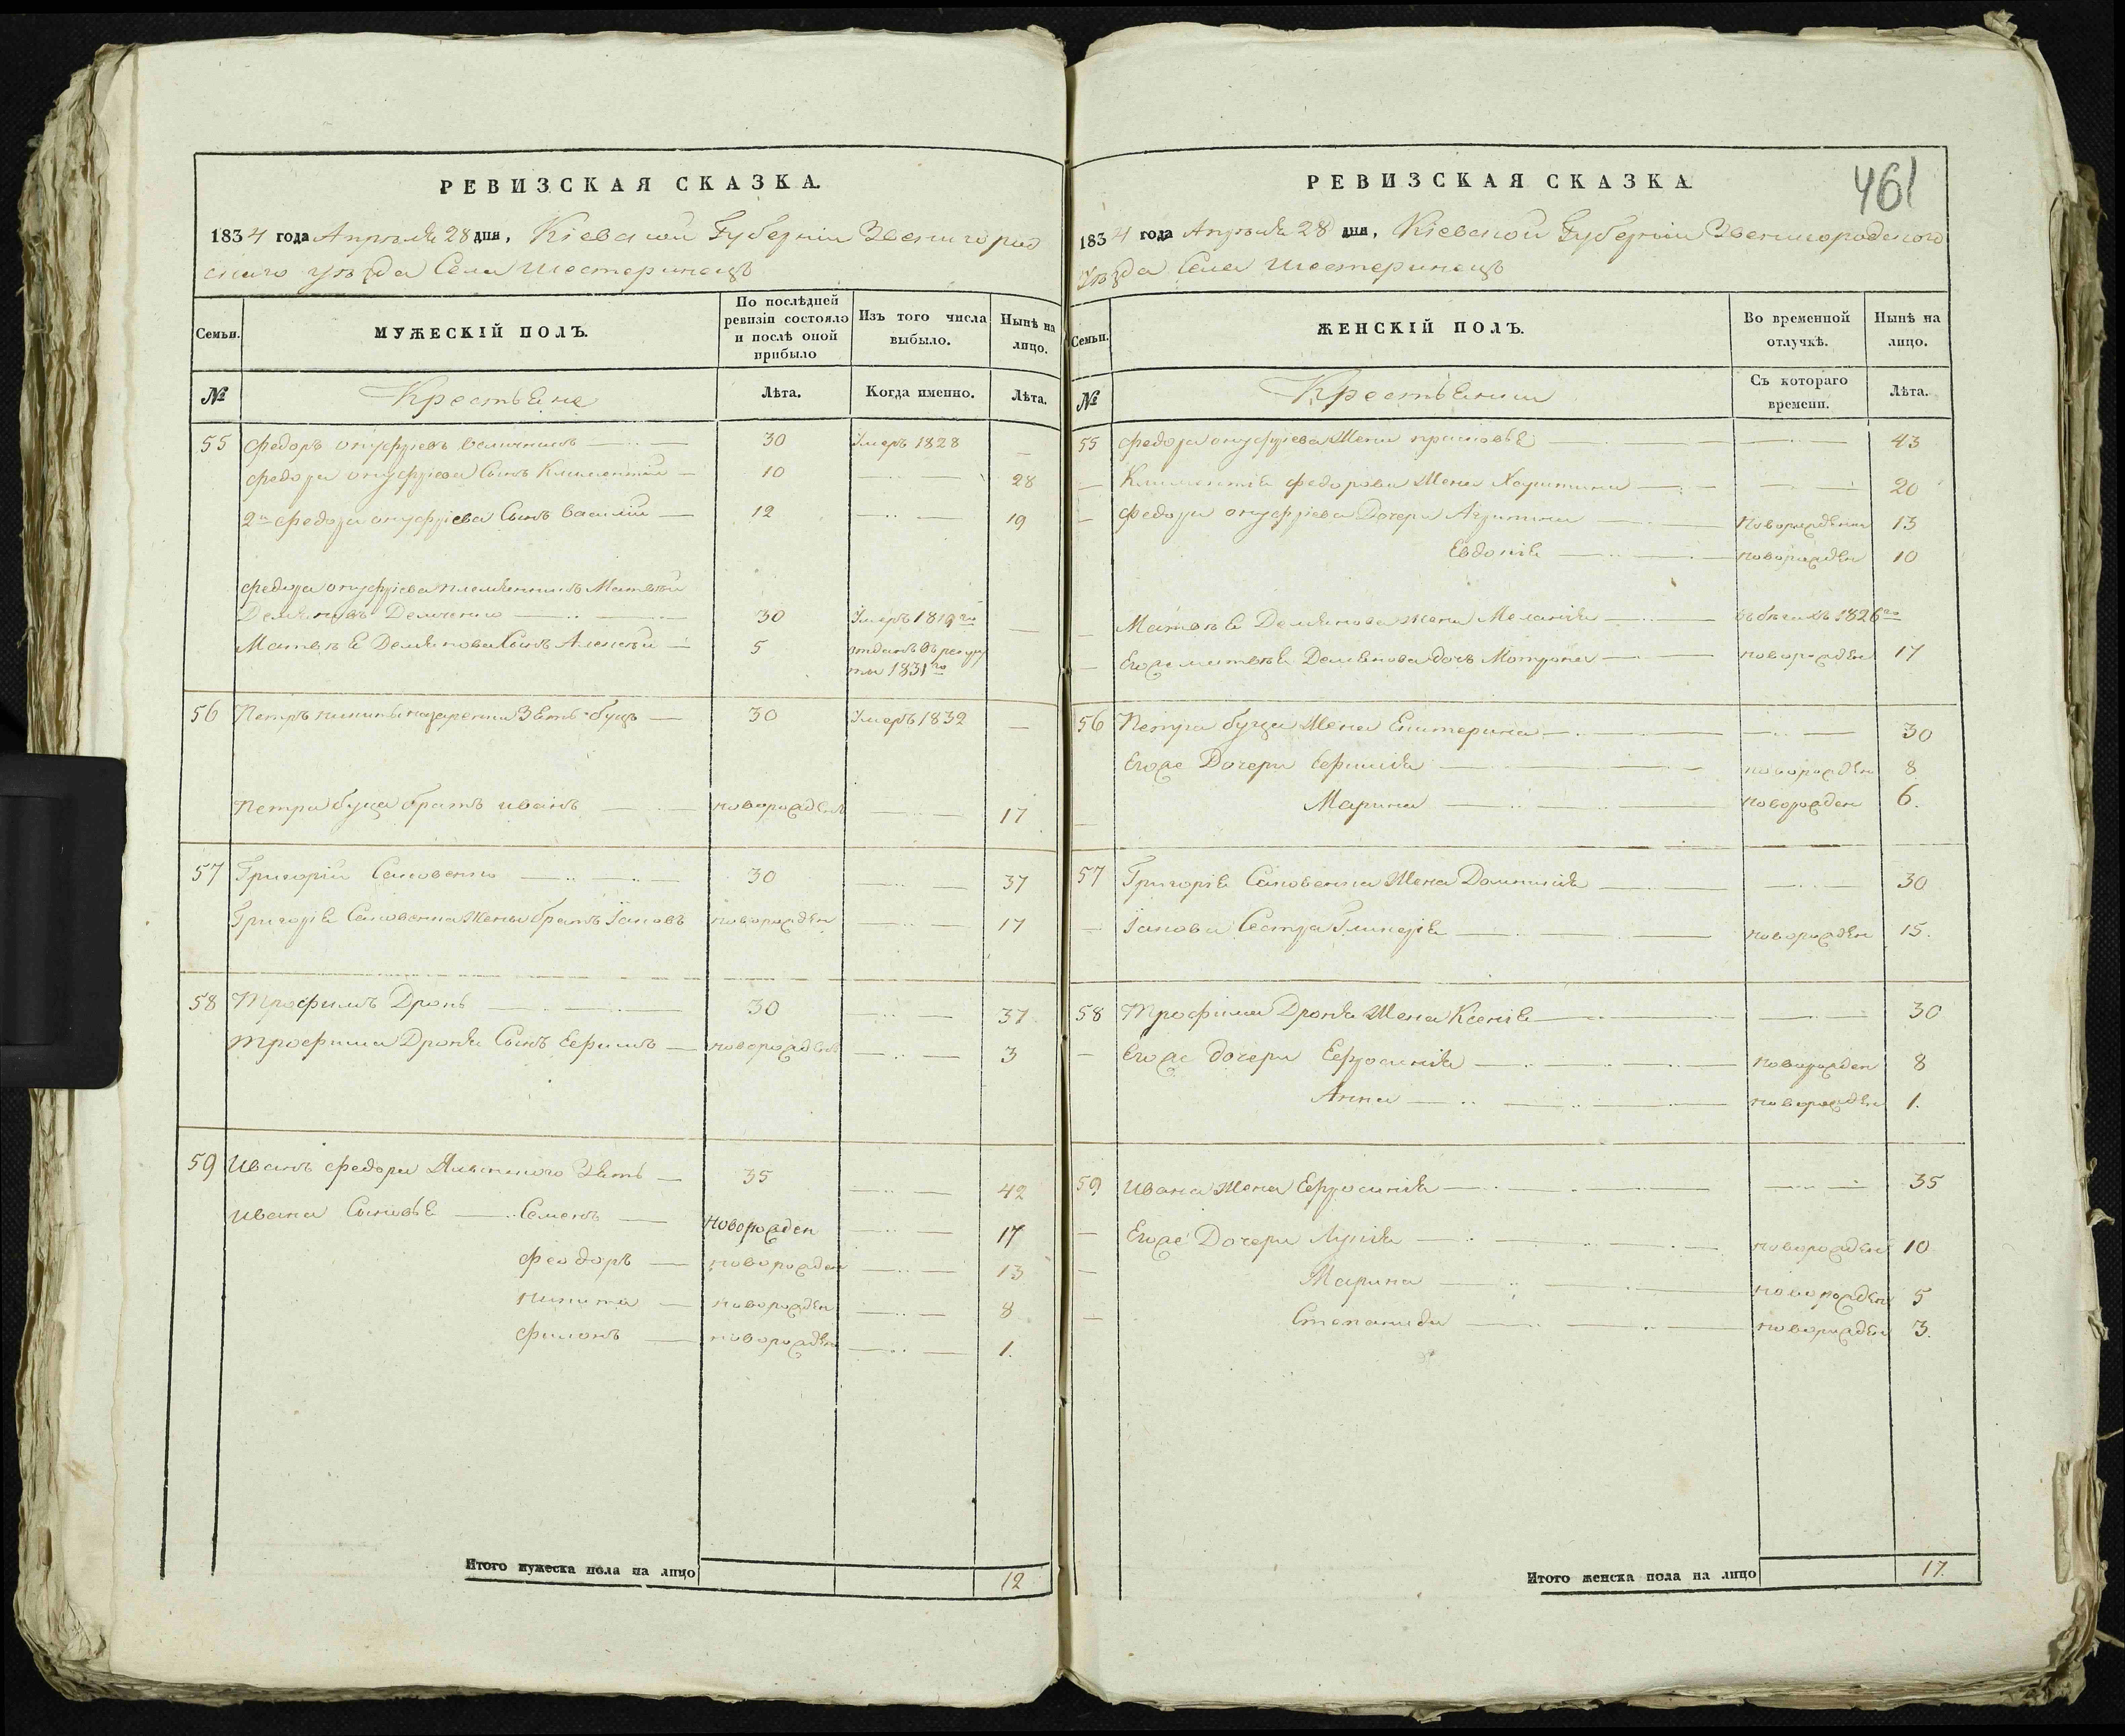 РЕВИЗСКАЯ СКАЗКА.
1834 года Апреля 28 дня, Кіевской Губерніи Звенигород
скаго уѣзда Села Шестеринецъ
Семьи. МУЖЕСКІЙ ПОЛЪ. По послѣдней ревизіи состояло и послѣ оной прибыло Изъ того числа выбыло. Нынѣ на лицо.
№ Крестьяне Лѣта. Когда именно. Лѣта.
55 Федоръ онуфріевъ 30 Умеръ 1828 —
Федора онуфріева Сынъ Климентій — 10 — 28
2й Федора онуфріева Сынъ Василій — 12 — 19
Федора онуфріева племянникъ Матвѣй
Демяновъ Демченко — 30 Умеръ 1819го —
Матвѣя Демянова Сынъ Алексѣй — 5 отданъ въ рекру
ты 1831го
56 Петръ Никиты назаренка Зять буцъ — 30 Умеръ 1832 —
Петра буца братъ иванъ — новорожденъ — 17
57 Григорій Саковенко — 30 — 37
Григорія Саковенка Жены братъ Іаковъ новорожден — 17
58 Трофимъ Дронь — 30 — 37
Трофима Дроня Сынъ Ефимъ — новорожденъ — 3
59 Иванъ федора Зять — 35 — 42
Ивана Сыновья — Семенъ — новорожден — 17
Феодоръ — новорожден — 13
Никита — новорожден — 8
Филонъ — новорожден — 1.
Итого мужеска пола на лицо 12
РЕВИЗСКАЯ СКАЗКА 461
1834 года Апреля 28 дня, Кіевской Губерніи Звенигородского
Уѣзда Села Шестеринецъ
Семьи. ЖЕНСКІЙ ПОЛЪ. Во временной отлучкѣ. Нынѣ на лицо.
№ Крестьянки Съ котораго времени. Лѣта.
55 Федора онуфріева Жена прасковья — 43
— Климентія федорова Жена Харитина — 20
— Федора онуфріева Дочери — новорожденна 13
Евдокія — новорожден 10
— Матвѣя Демянова жена Меланія — въ бѣгахъ 1826го
— Егоже матвѣя Демянова дочь Мотрона — новорожден 17
56 Петра буца Жена Екатерина — 30
Егоже Дочери Ефимія — новорожден 8
Марина — новорожден 6.
57 Григорія Саковенка Жена Домникія — 30
— Іакова Сестра Гликерія — новорожден 15.
58 Трофима Дроня Жена Ксенія — 30
— Егоже дочери Ефросинія — новорожден 8
Анна — новорожден 1.
59 Ивана Жена Ефросинія — 35
— Егоже Дочери Лукія — новорожден 10
— Марина — новорожден 5
— Степанида — новорожден 3.
Итого женска пола на лицо 17.